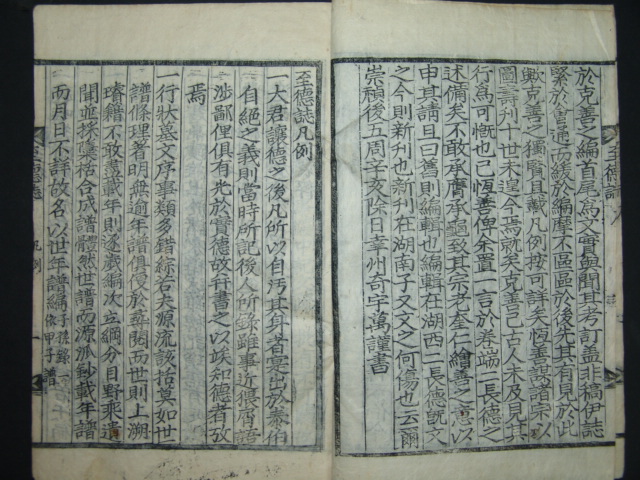 至德誌
於克善之編首尾爲文實與聞其考訂盡非稿伊誌
緊於通而緩於編摩不區區於後先其有見於此
歟克善之獨賢且載凡例按可詳矣恆善謀諸宗以
圖壽刊十世未遑今焉就矣克善已古人未及見其
行爲可慨也已恆善俾余置一言於卷端二長德之
述備矣不敢承膺承致其宗老奎仁繪善之意以
申其請且曰舊則編輯也編輯在湖西二長德旣文
之今則新刊也新刊在湖南子又文之何傷也云爾
崇禎後五周辛亥除日幸州奇宇萬謹書
至德誌凡例
一大君讓德之後凡所以自汚其身者寔出於泰伯
自絕之義則當時所記後人所錄雖事近猥屑語
涉鄙俚俱有光於實德故幷書之以竢知德者故
焉
一行狀墓文序事類多錯綜若夫源流該括莫如世
譜條理著明無逾年譜俱便於閱而世則上溯
璿籍不敢盡載年則逐歲編次立綱分目野乘遺
聞並採櫽栝合成譜體然世譜而源派鈔載年譜
而月日不詳故名以世年譜編子孫錄一依甲子譜
至德誌 凡例